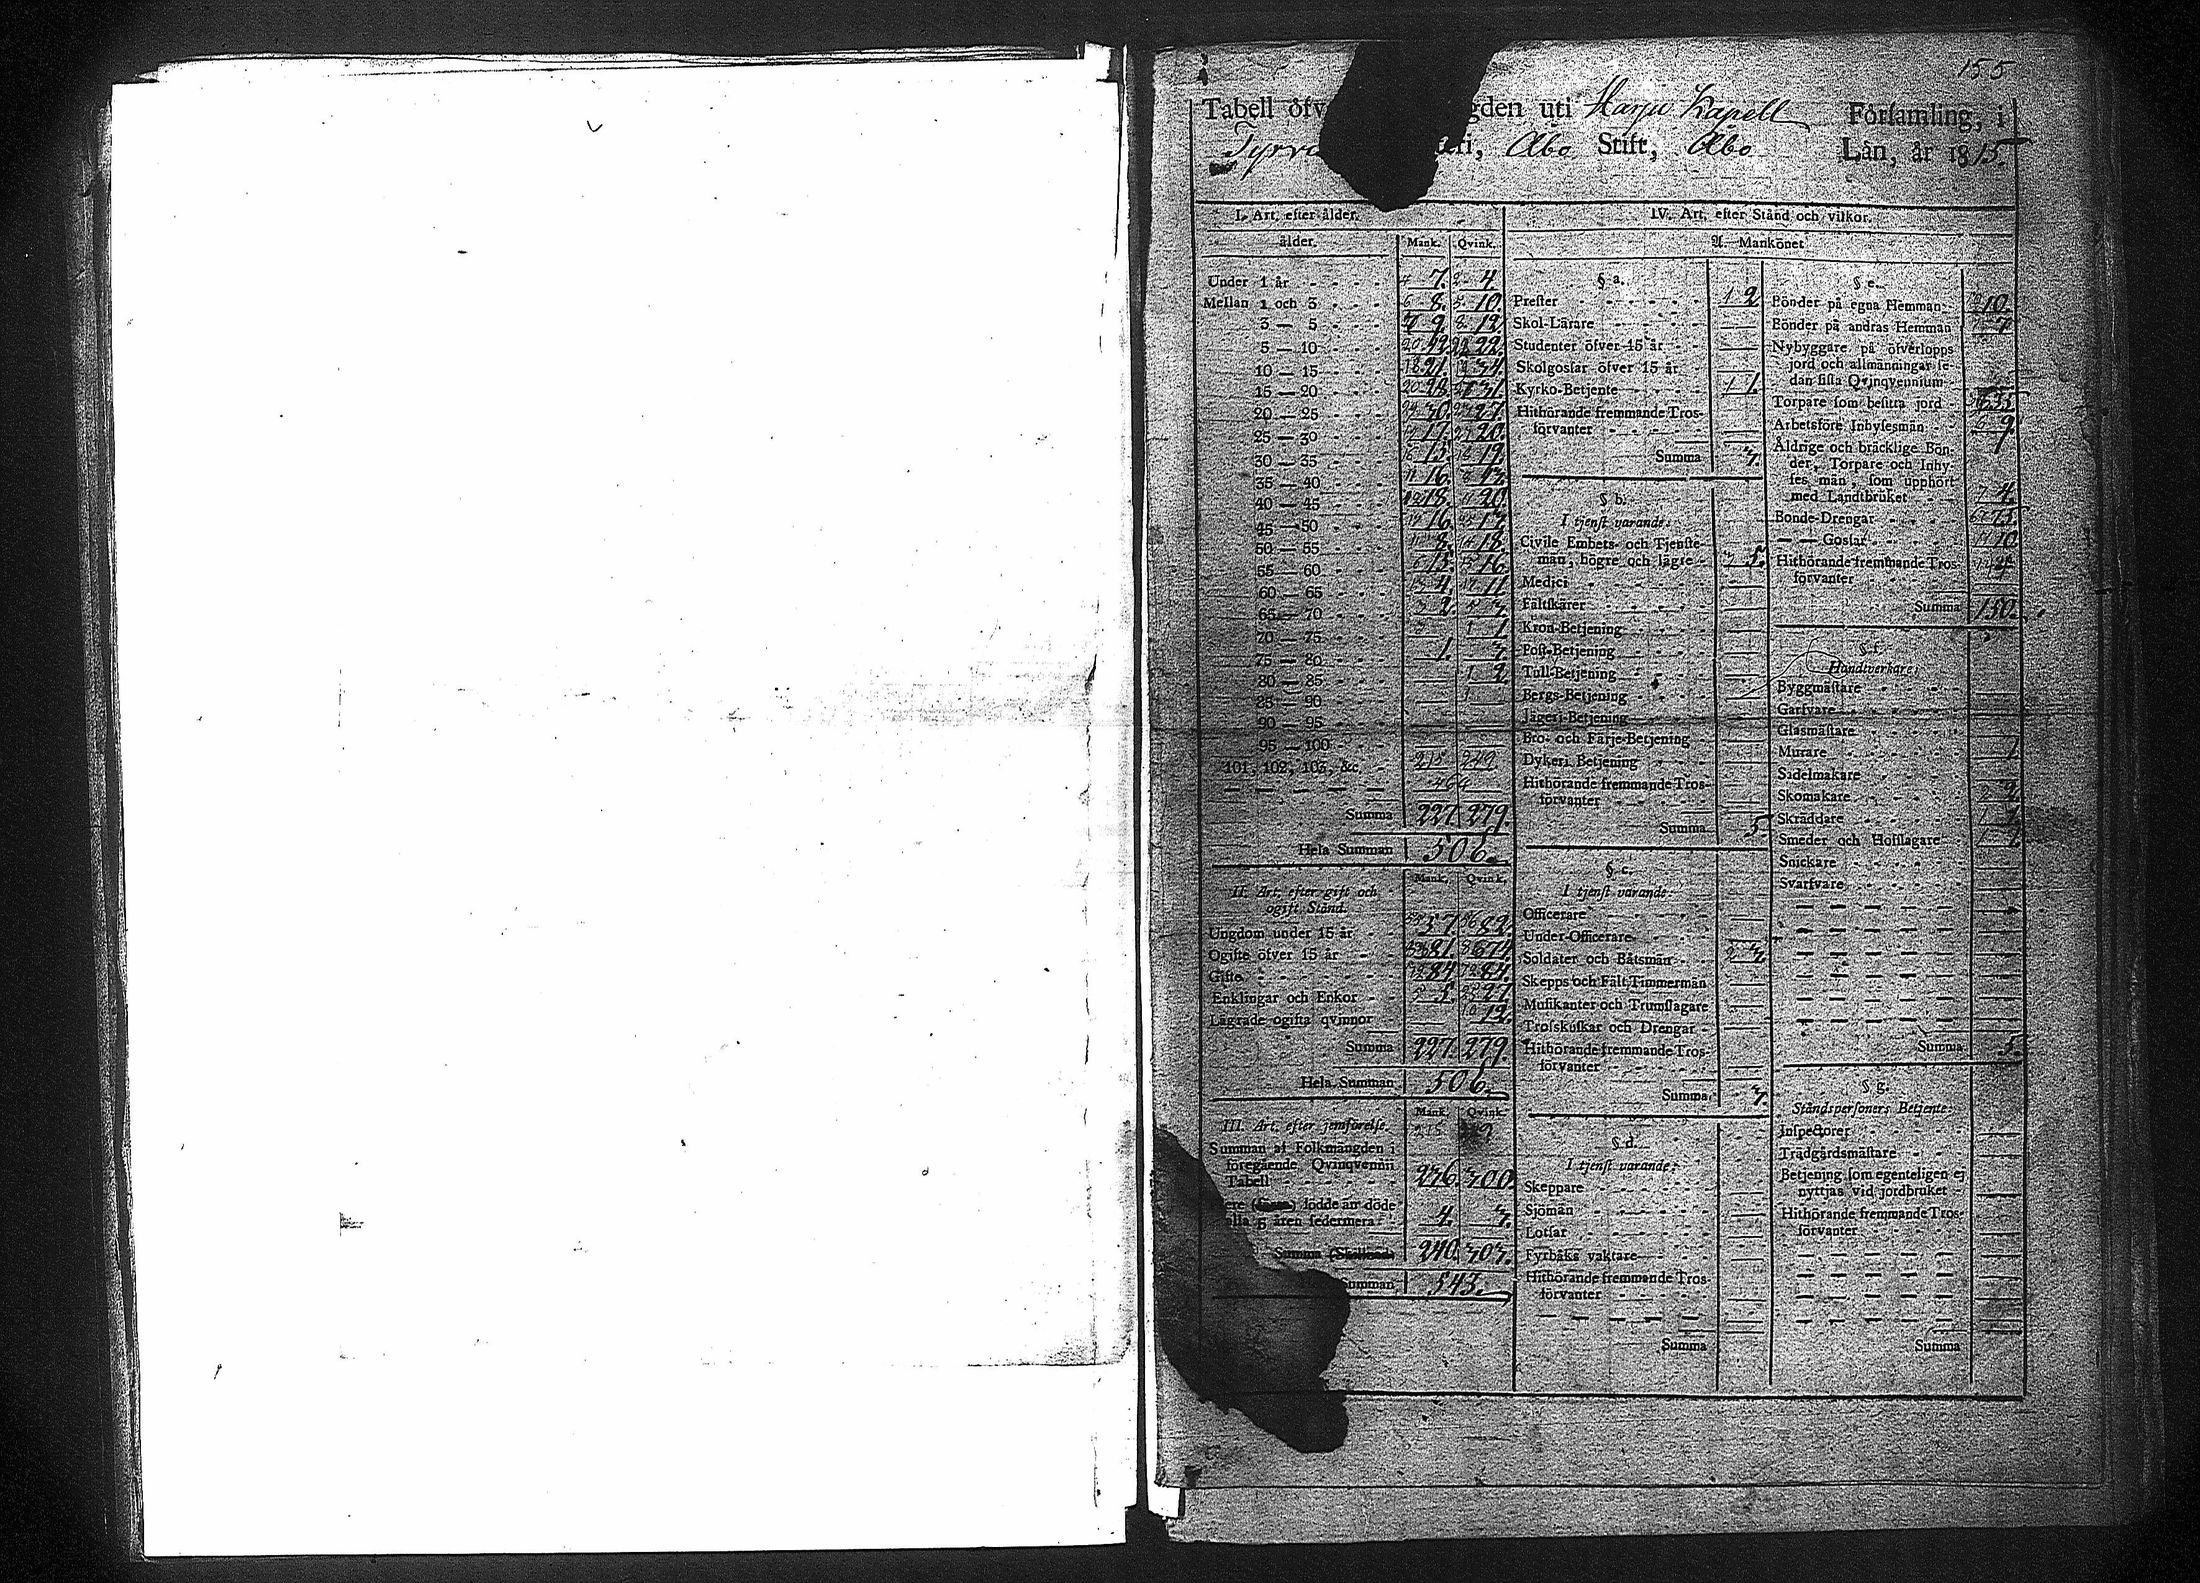 155
Tabell öfv gden uti Harju Kapell Förſamling, i
Tyrv ri, Åbo Stift, Åbo Län, år 1815.
I. Art, efter ålder.
ålder. Mank. Qvink.
Under 1 år 7. 4
Mellan 1 och 3 8. 10.
3 — 5 9. 12.
5 — 10 22. 22.
10 — 15 21. 34.
15 — 20 28. 31.
20 — 25 30. 27.
25 — 30 17. 20.
30 — 35 15. 19.
35 — 40 16. 13.
40 — 45 18. 20.
45 — 50 16. 17.
50 — 55 8. 18.
55 — 60 15. 16.
60 — 65 4. 11.
65 — 70 2. 3.
70 — 75 1.
75 — 80 1. 3.
80 — 85 2.
85 — 90
90 — 95
95 — 100
101, 102, 103, &c. 215 249
464
Summa 227. 279.
Hela Summan 506.
Mank. Qvink.
II. Art, efter gift och
ogift Stånd.
Ungdom under 15 år 57. 82.
Ogifte öfver 15 år 81. 74.
Gifte 84. 84.
Enklingar och Enkor 5. 27.
Lägrade ogifta qvinnor 12.
Summa 227. 279.
Hela Summan 506.
Mank. Qvink.
III. Art, efter jemförelſe. 215
Summan af Folkmängden i
föregående Qvinqvennii
Tabell 236. 300.
re födde än döde
alla 5 åren ſedermera 4. 3.
Summa 240. 303.
Summan 543.
IV. Art, efter Stånd och vilkor.
A. Mankönet
§ a.
Preſter 1 2
Skol-Lärare
Studenter öfver 15 år
Skolgoſſar öfver 15 år
Kyrko-Betjente 1 1.
Hithörande fremmande Tros-
förvanter
Summa 3.
§ b.
I tjenſt varande:
Civile Embets- och Tjenſte-
män, högre och lägre 5.
Medici
Fältſkärer
Kron-Betjening
Poſt-Betjening
Tull-Betjening
Bergs-Betjening
Jägeri-Betjening
Bro- och Färje-Betjening
Dykeri Betjening
Hithörande fremmande Tros-
förvanter
Summa 5.
§ c.
I tjenſt varande:
Officerare
Under-Officerare
Soldater och Båtsmän 3.
Skepps och Fält Timmermän
Muſikanter och Trumſlagare
Troſskuſkar och Drengar
Hithörande fremmande Tros-
förvanter
Summa 3.
§ d.
I tjenſt varande:
Skeppare
Sjömän
Lotſar
Fyrbåks vaktare
Hithörande fremmande Tros-
förvanter
Summa
§ e.
Bönder på egna Hemman 10.
Bönder på andras Hemman 7
Nybyggare på öfverlopps
jord och allmänningar ſe-
dan ſiſta Qvinqvennium
Torpare ſom beſitta jord 35
Arbetsföre Inhyſesmän 9.
Äldrige och bräcklige Bön-
der, Torpare och Inhy-
ſes män, ſom upphört
med Landtbruket 4.
Bonde-Drengar 75.
— — Goſſar 10
Hithörande fremmande Tros-
förvanter
Summa 150.
§ f.
Handtverkare:
Byggmäſtare
Garfvare
Glasmäſtare
Murare 1
Sadelmakare
Skomakare 2
Skräddare 1.
Smeder och Hofſlagare 1.
Snickare
Svarfvare
Summa 5.
§ g.
Ståndsperſoners Betjente:
Inſpectorer
Trädgårdsmäſtare
Betjening ſom egenteligen ej
nyttjas vid jordbruket
Hithörande fremmande Tros-
förvanter
Summa